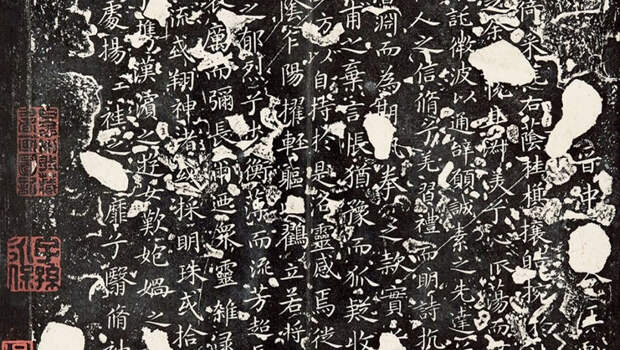 倚采旄右蔭桂旗攘皓
之余情悅其淑美兮心振蕩而
託微波以通辭願誠素之先達
人之信脩兮羌習禮而明詩抗
淵而為期執拳之款實
甫之棄言悵猶豫而狐疑收
防以自持於是洛靈感焉徙
陰乍陽擢輕軀以鶴立若將
之郁烈步衡薄而流芳超
哀厲而彌長爾迺眾靈雜遝
流或翔神渚或採明珠或拾
攜漢濱之遊女歎匏媧之
處揚輕袿之猗靡翳脩袖
子孫
永保